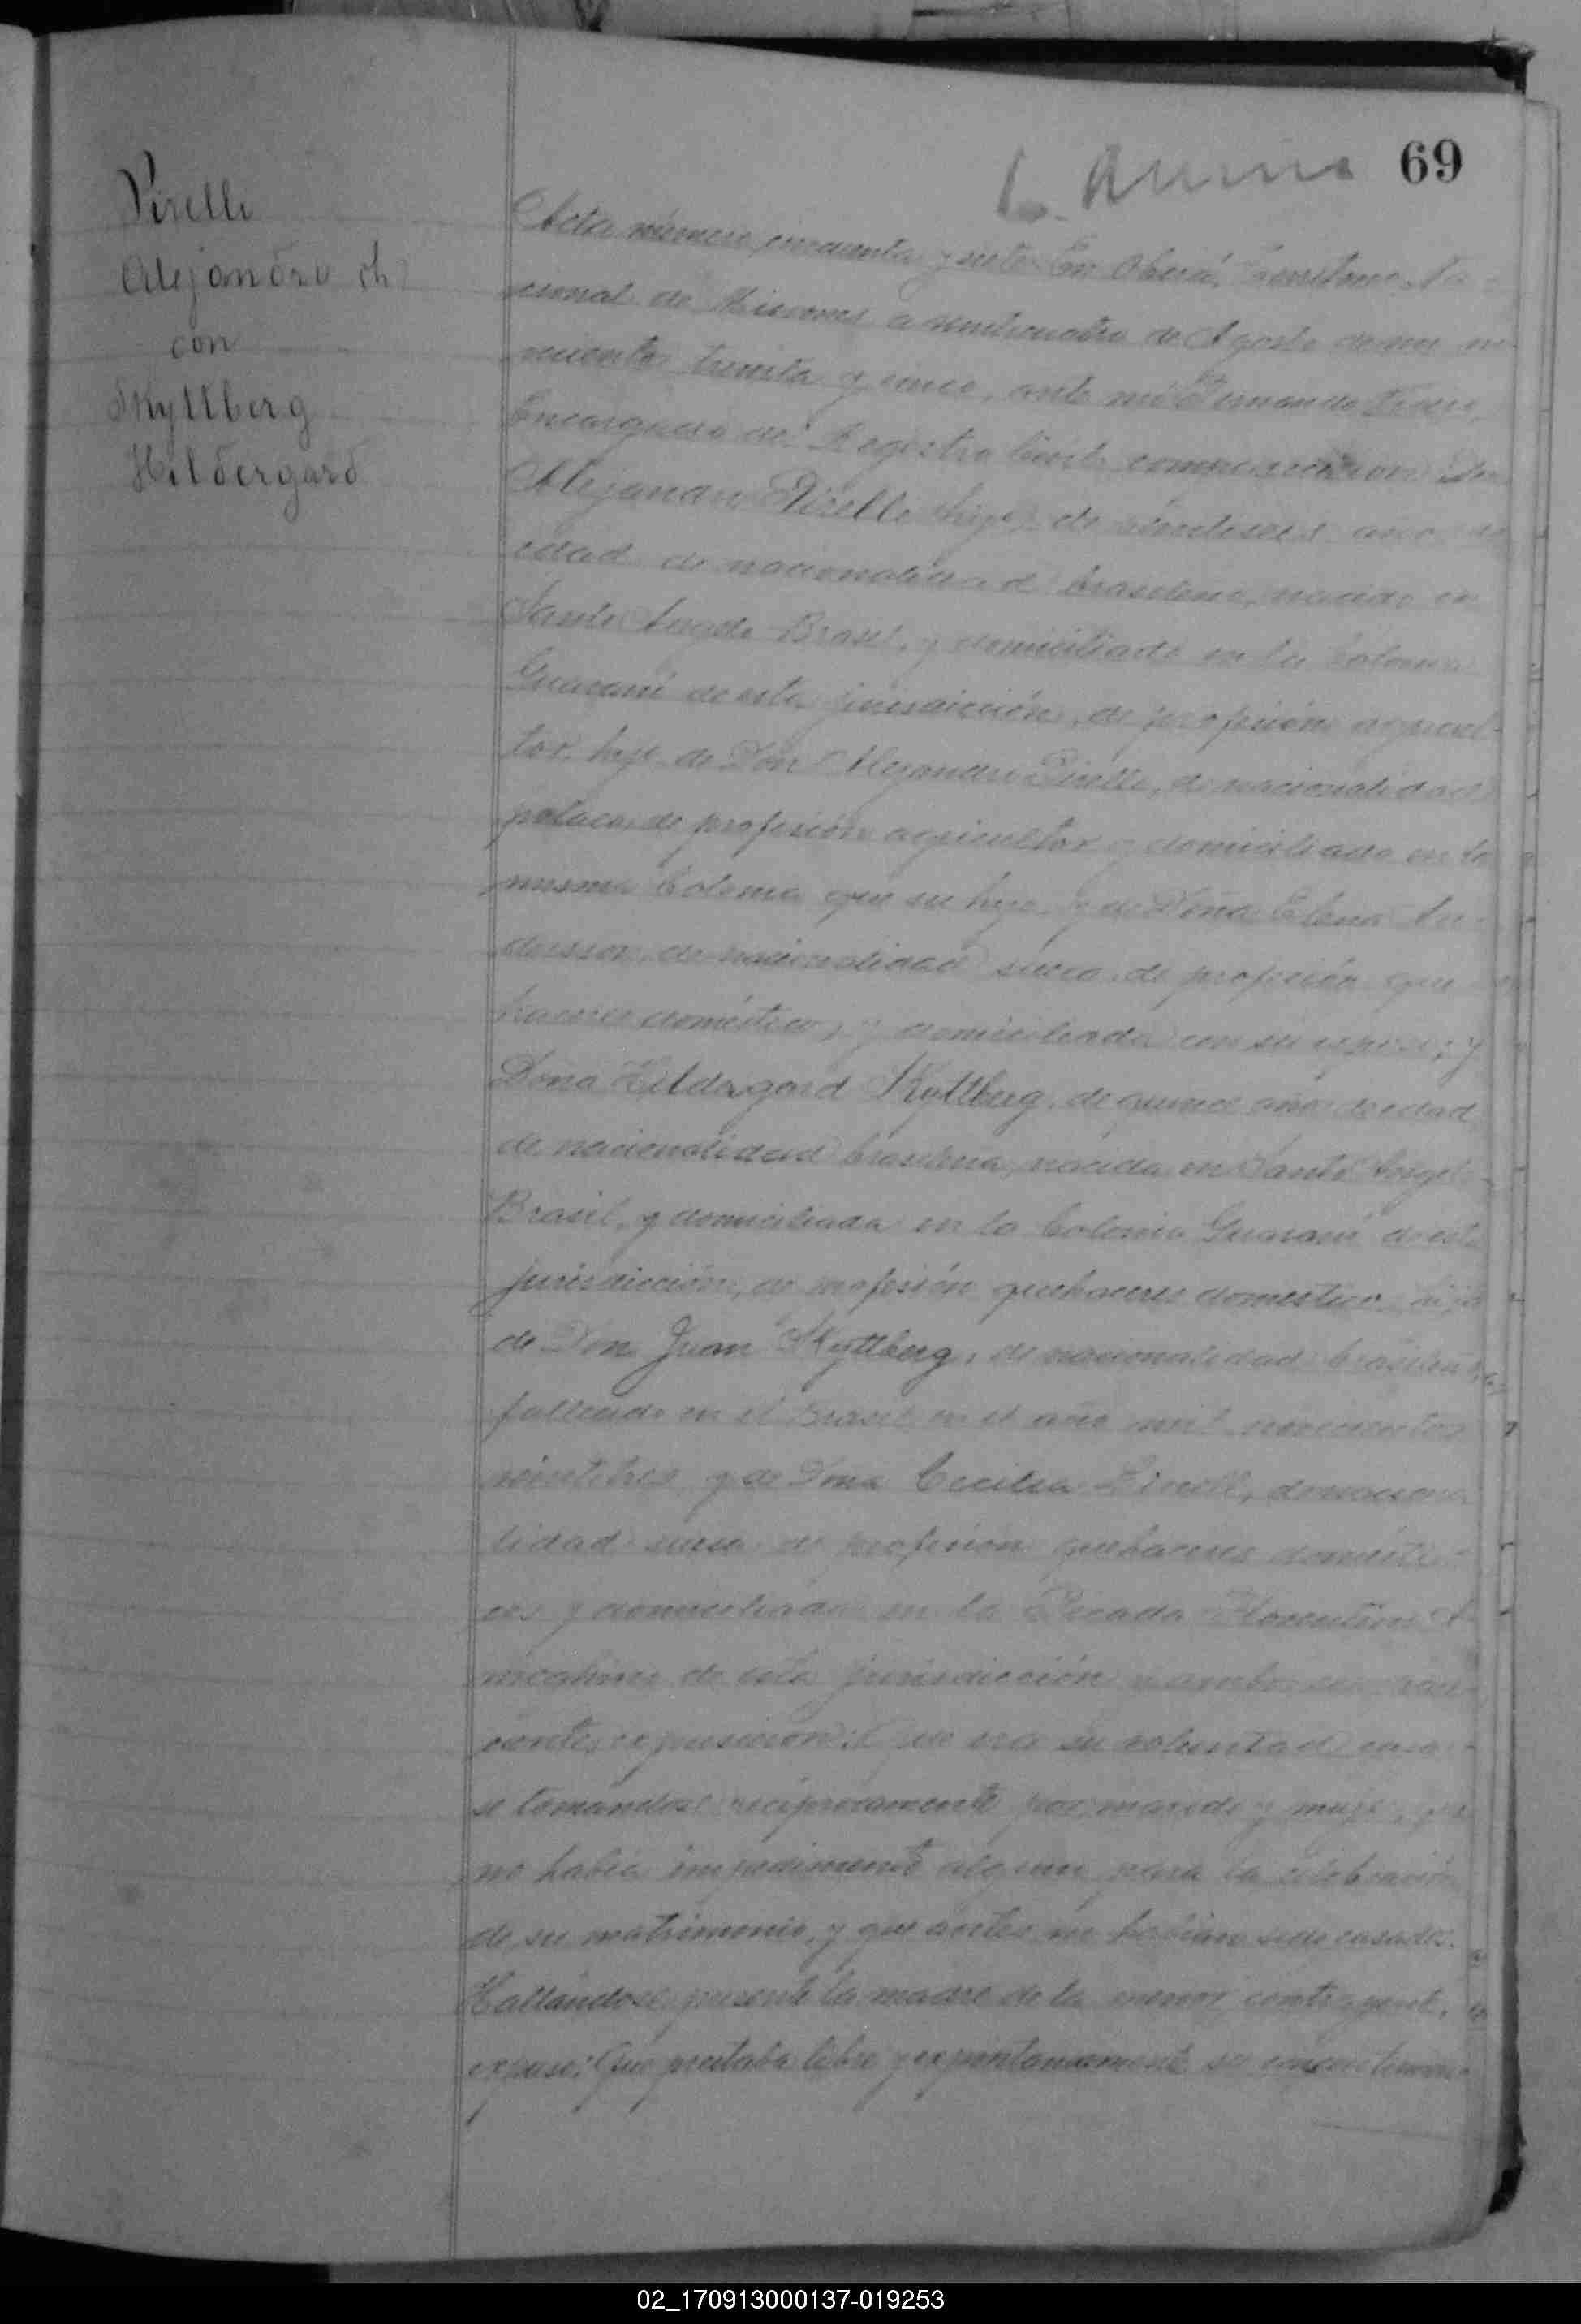 69
Pirelli
Alejandro (h)
con
Skyttberg
Hildergard
Acta número cincuenta y siete. En Oberá, Territorio Na-
cional de Misiones a veinticuatro de Agosto de mil no-
vecientos treinta y cinco, ante mí Fernando
Encargado del Registro Civil, comparecieron Don
Alejandro Pirelli (hijo) de veintiseis años de
edad de nacionalidad brasileña, nacido en
Santo Angelo Brasil, y domiciliado en la Colonia
Guaraní de esta jurisdicción, de profesión agricul-
tor, hijo de Don Alejandro Pirelli, de nacionalidad
polaca, de profesión agricultor y domiciliado en la
misma Colonia que su hijo, y de Doña Elena An-
dersson, de nacionalidad sueca, de profesión que
haceres domésticos, y domiciliada con su esposo; y
Doña Hildergard Skyttberg, de quince años de edad
de nacionalidad brasilena, nacida en Santo Angelo
Brasil, y domiciliada en la Colonia Guaraní de esta
jurisdicción, de profesión quehaceres domesticos, hija
de Don Juan Skyttberg, de nacionalidad brasileña,
fallecido en el Brasil en el año mil novecientos
veintitres, y de Doña Cecilia de naciona
lidad sueca de profesión quehaceres domésti-
cos y domiciliada en la Picada Florentino A-
meghino de esta jurisdicción y ambos
expusieron: Que era su voluntad casar-
se tomándose recíprocamente por marido y mujer, que
no había impedimento alguno para la celebración
de su matrimonio, y que antes no habían sido casados.
Hallándose presente la madre de la menor contrayente,
expuso: Que prestaba libre y expontaneamente su consentimien-
02_170913000137-019253